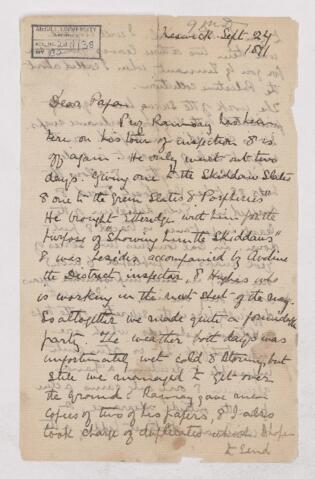 McGILL UNIVERSITY
ARCHIVES
ACC. NO.
REF.
Keswick. Sept. 24
1871
Dear Papa
Prof Ramsay has been
here on his tour of inspection & is
off again. He only went out two
days. Giving one to the Skiddaw Slates
& one to the "Green Slates & Porphyries"
He brought Etheridge with him for the
purpose of "Showing him the Skiddaws"
& was besides accompanied by Aveline
the District inspector, & Hughes who
is working in the next sheet of the map.
So altogether we made quite a formidable
party. The weather both days was
unfortunately wet cold & stormy, but
still we managed to get over
the Ground. Ramsay gave me
copies of two of his papers, & I also
took charge of duplicates which I hope
to send